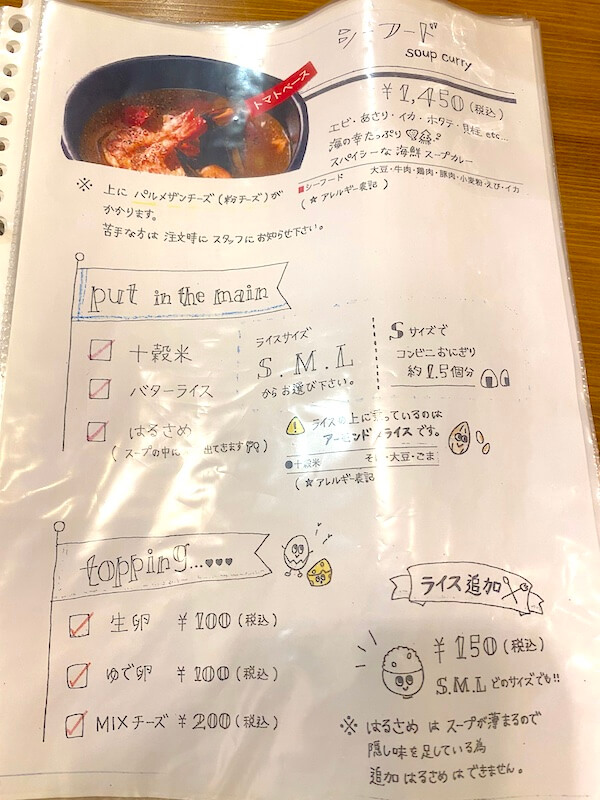 シーフード
soup curry
トマトベース
¥1,450(税込)
エビ・あさり・イカ・ホタテ・貝柱, etc...
海の幸たっぷり
スパイシーな海鮮スープカレー
■シーフード 大豆・牛肉・鶏肉・豚肉・小麦粉・えび・イカ
(☆アレルギー表記)
※ 上に パルメザンチーズ(粉チーズ)が
かかります。
苦手な方は 注文時に スタッフに お知らせ下さい。
put in the main
十穀米
バターライス
はるさめ
(スープの中に 出てきます)
ライスサイズ
S.M.L
からお選び下さい。
Sサイズで
コンビニおにぎり
約1.5個分
ライスの上に乗っているのは
アーモンドスライスです。
●十穀米 ・大豆・ごま
(☆アレルギー表記
topping...♥♥♥
生卵 ¥100(税込)
ゆで卵 ¥100(税込)
MIXチーズ ¥200(税込)
ライス追加
¥150(税込)
S.M.L どのサイズでも!!
※ はるさめ は スープが薄まるので
隠し味を足している為
追加はるさめはできません。